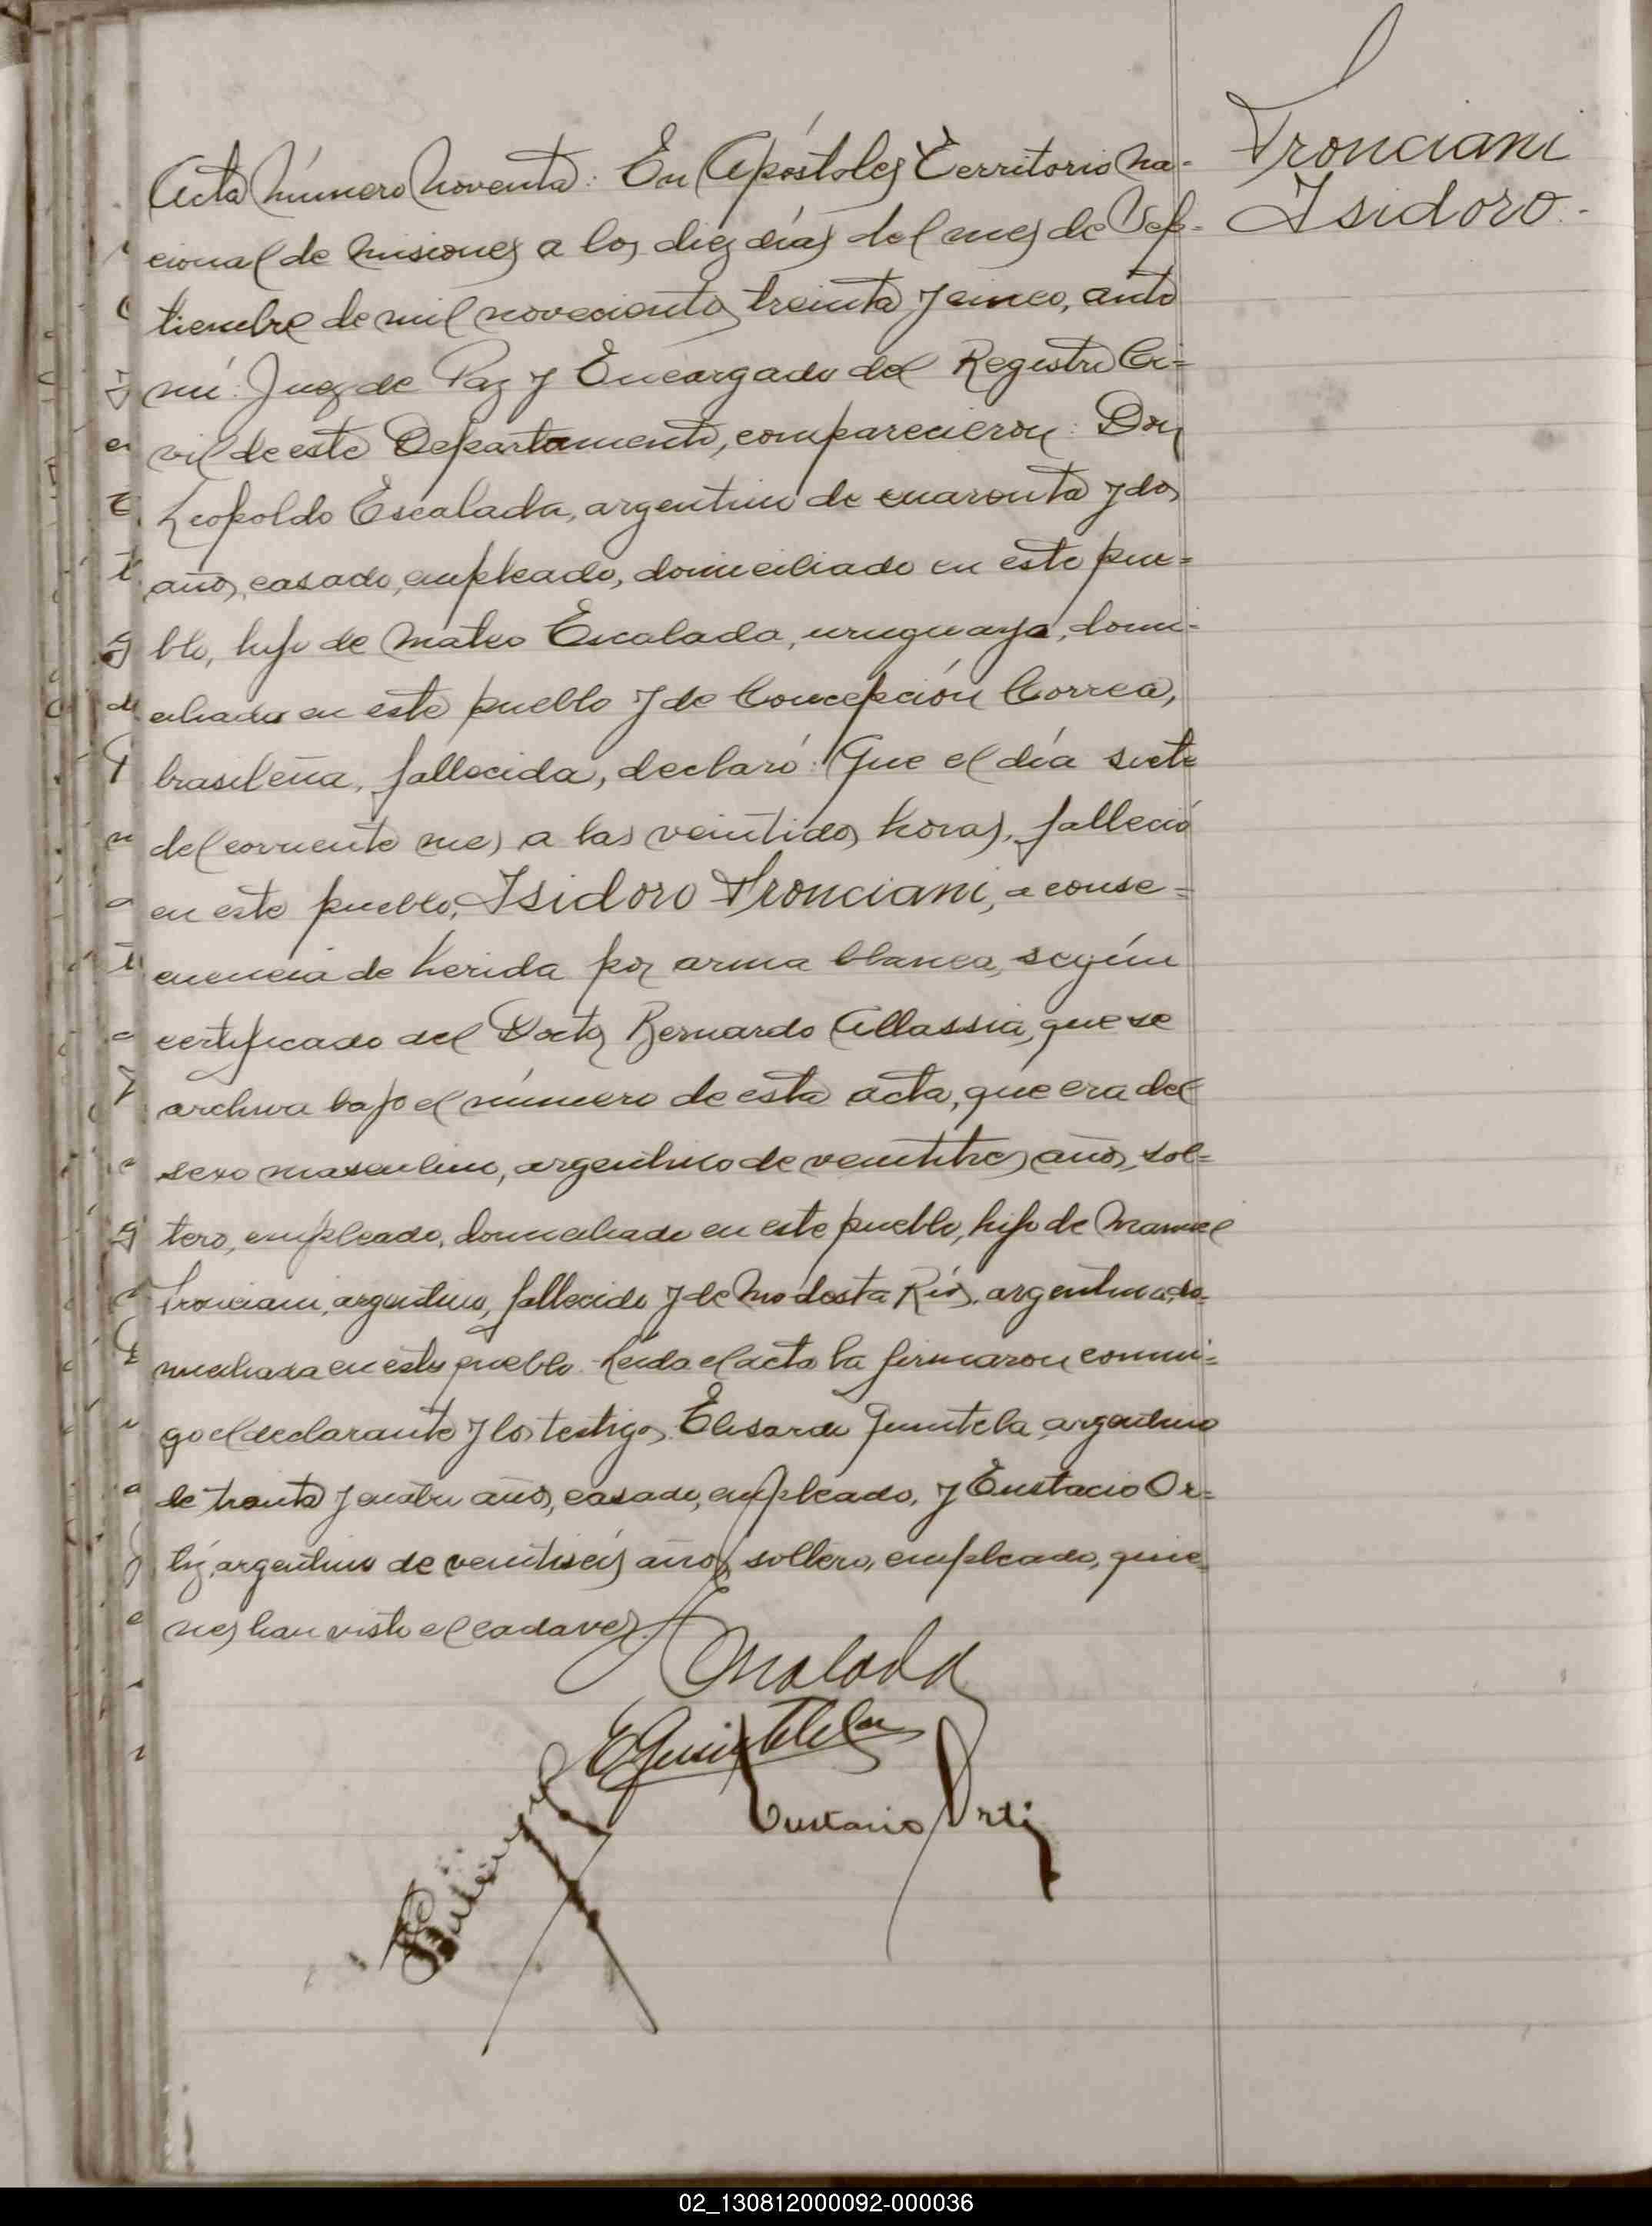 Tronciani
Isidoro.-
Acta Número Noventa: En Apóstoles Territorio Na-
cional de Misiones a los diez días del mes de Sep-
tiembre de mil novecientos treinta y cinco, ante
mí: Juez de Paz y Encargado del Registro Ci-
vil de este Departamento, comparecieron: Don
Leopoldo Escalada, argentino de cuarenta y dos
años, casado, empleado, domiciliado en este pue-
blo, hijo de Mateo Escalada, uruguayo, domi-
ciliado en este pueblo y de Concepción Correa,
brasileña, fallecida, declaró: Que el día siete
del corriente mes a las veintidos horas, falleció
en este pueblo, Isidoro Tronciani, a conse-
cuencia de herida por arma blanca, según
certificado del Doctor Bernardo Allassia, que se
archiva bajo el número de esta acta, que era del
sexo masculino, argentino de veintitres años, sol-
tero, empleado, domiciliado en este pueblo, hijo de Manuel
Tronciani, argentino, fallecido y de Modesta Ríos, argentina, do-
miciliada en este pueblo. Leida el acta la firmaron conmi-
go el declarante y los testigos Elisardo Quintela, argentino
de treinta y cuatro años, casado, empleado, y Eustacio Or-
tiz, argentino de veintiseis años, soltero, empleado, quie-
nes han visto el cadaver.
Escalada
E Quintela
Eustacio Ortiz
02_130812000092-000036